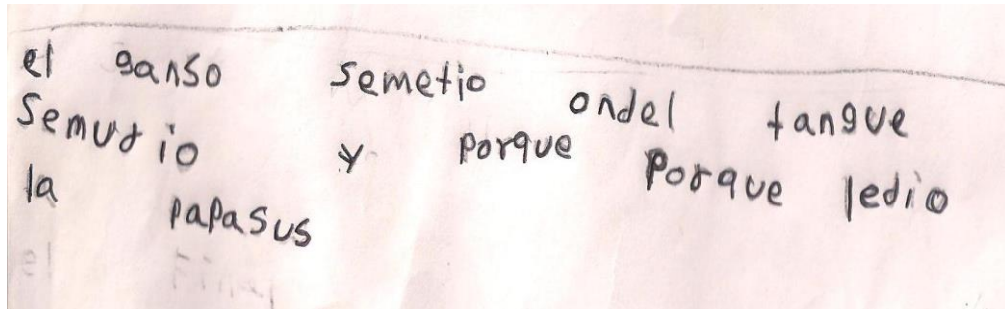 el ganso semetio ondel tangue
Semurio y porque porque ledio
la papasus